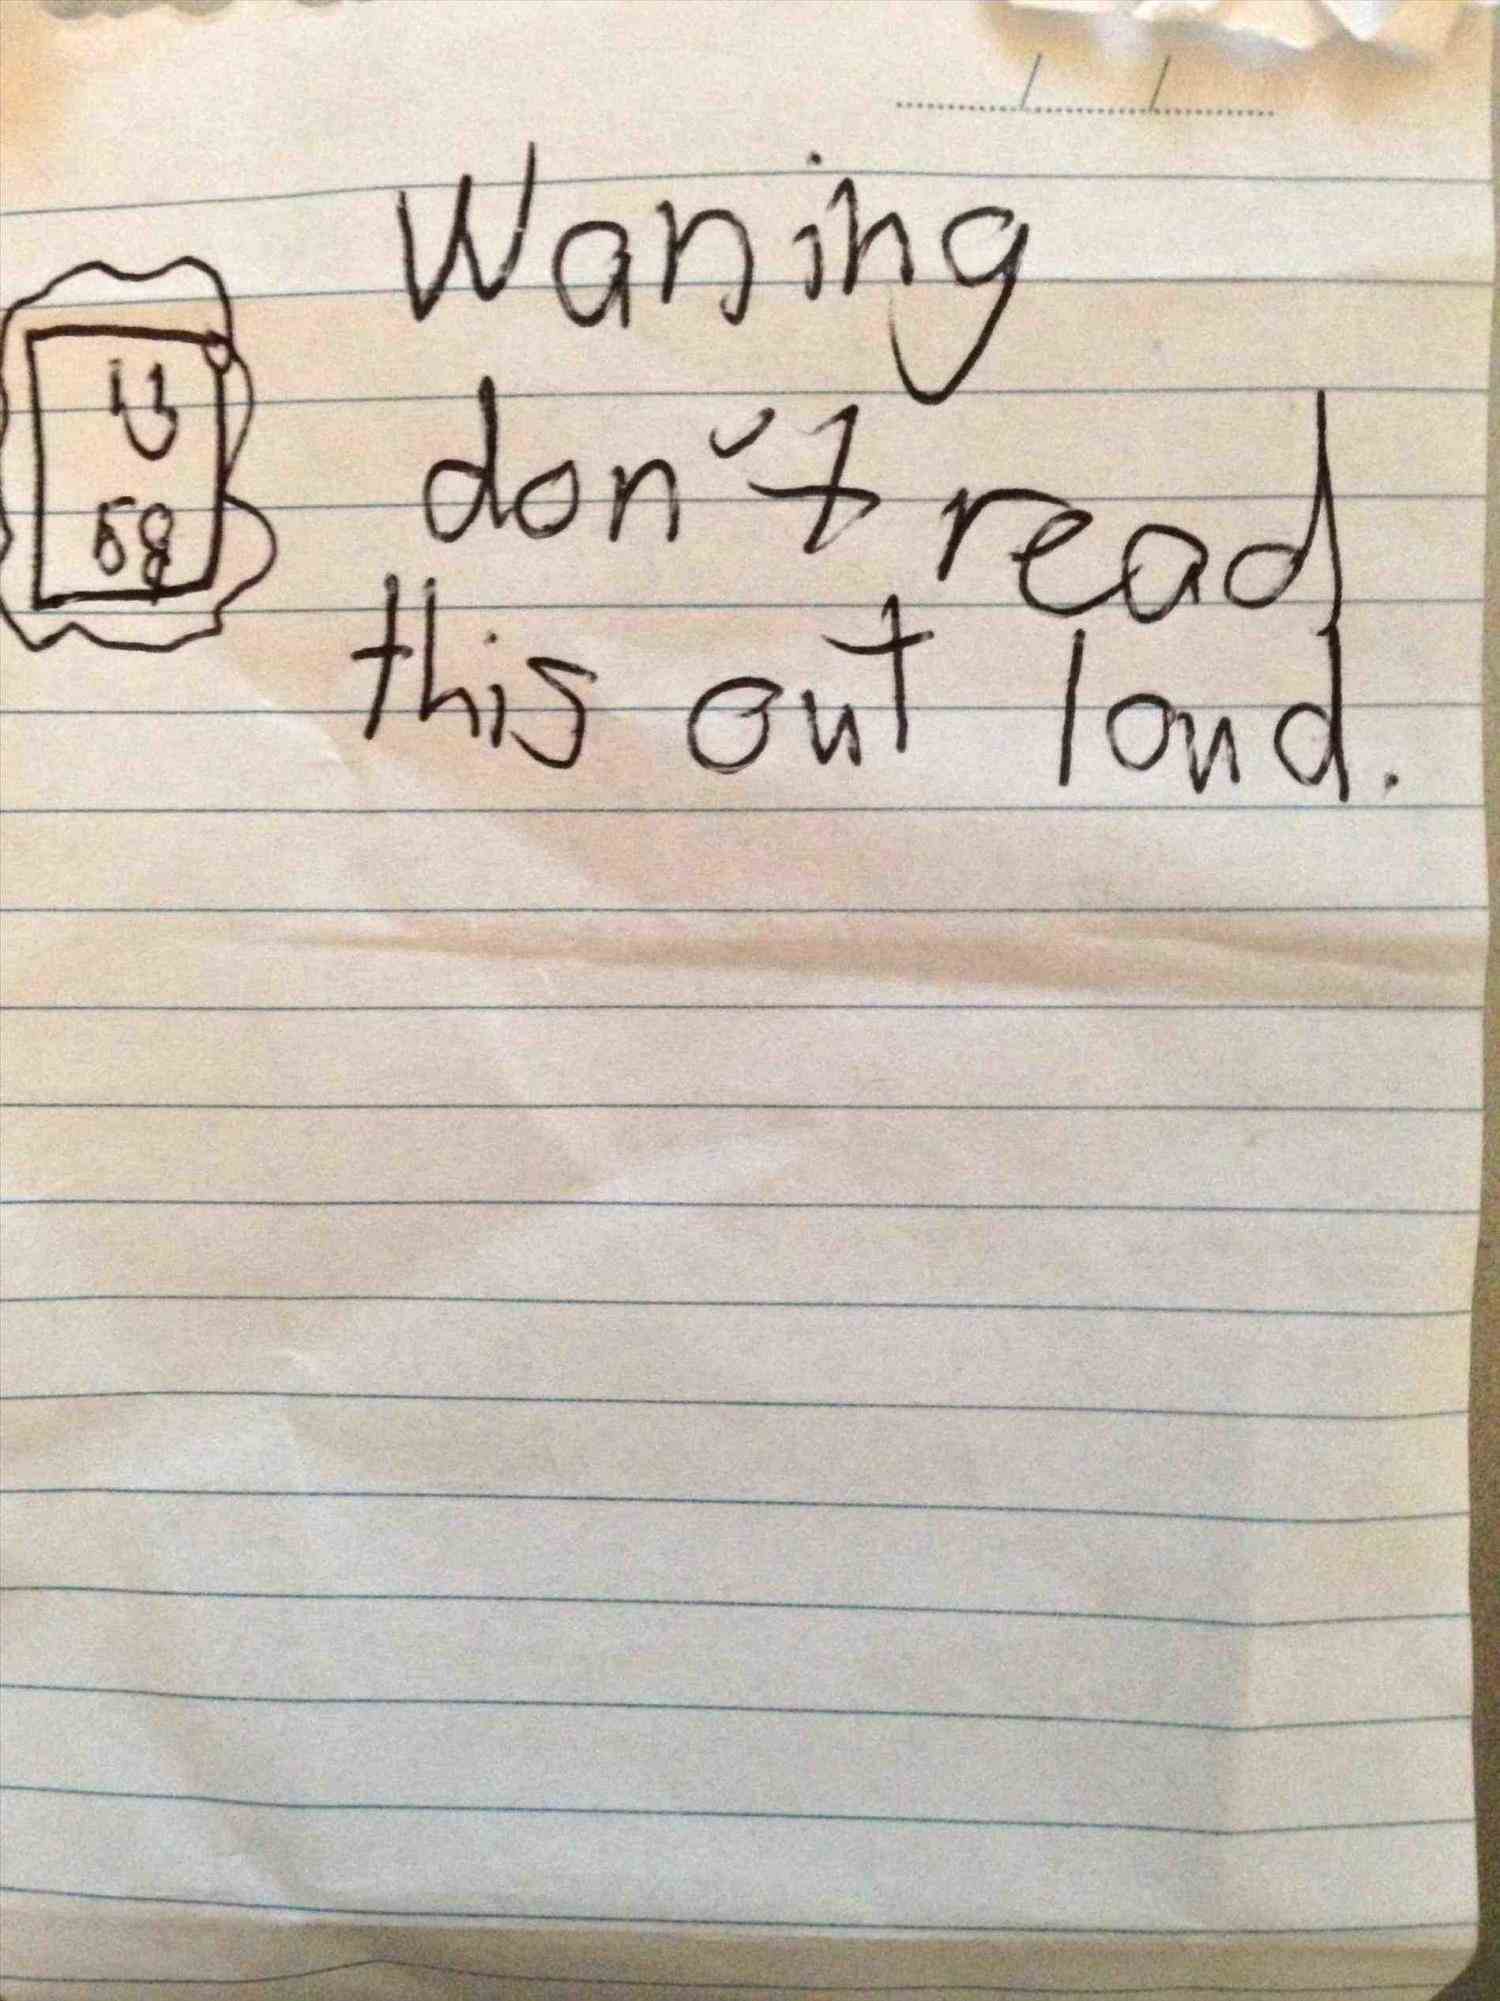 Waning
don't read
this out loud.